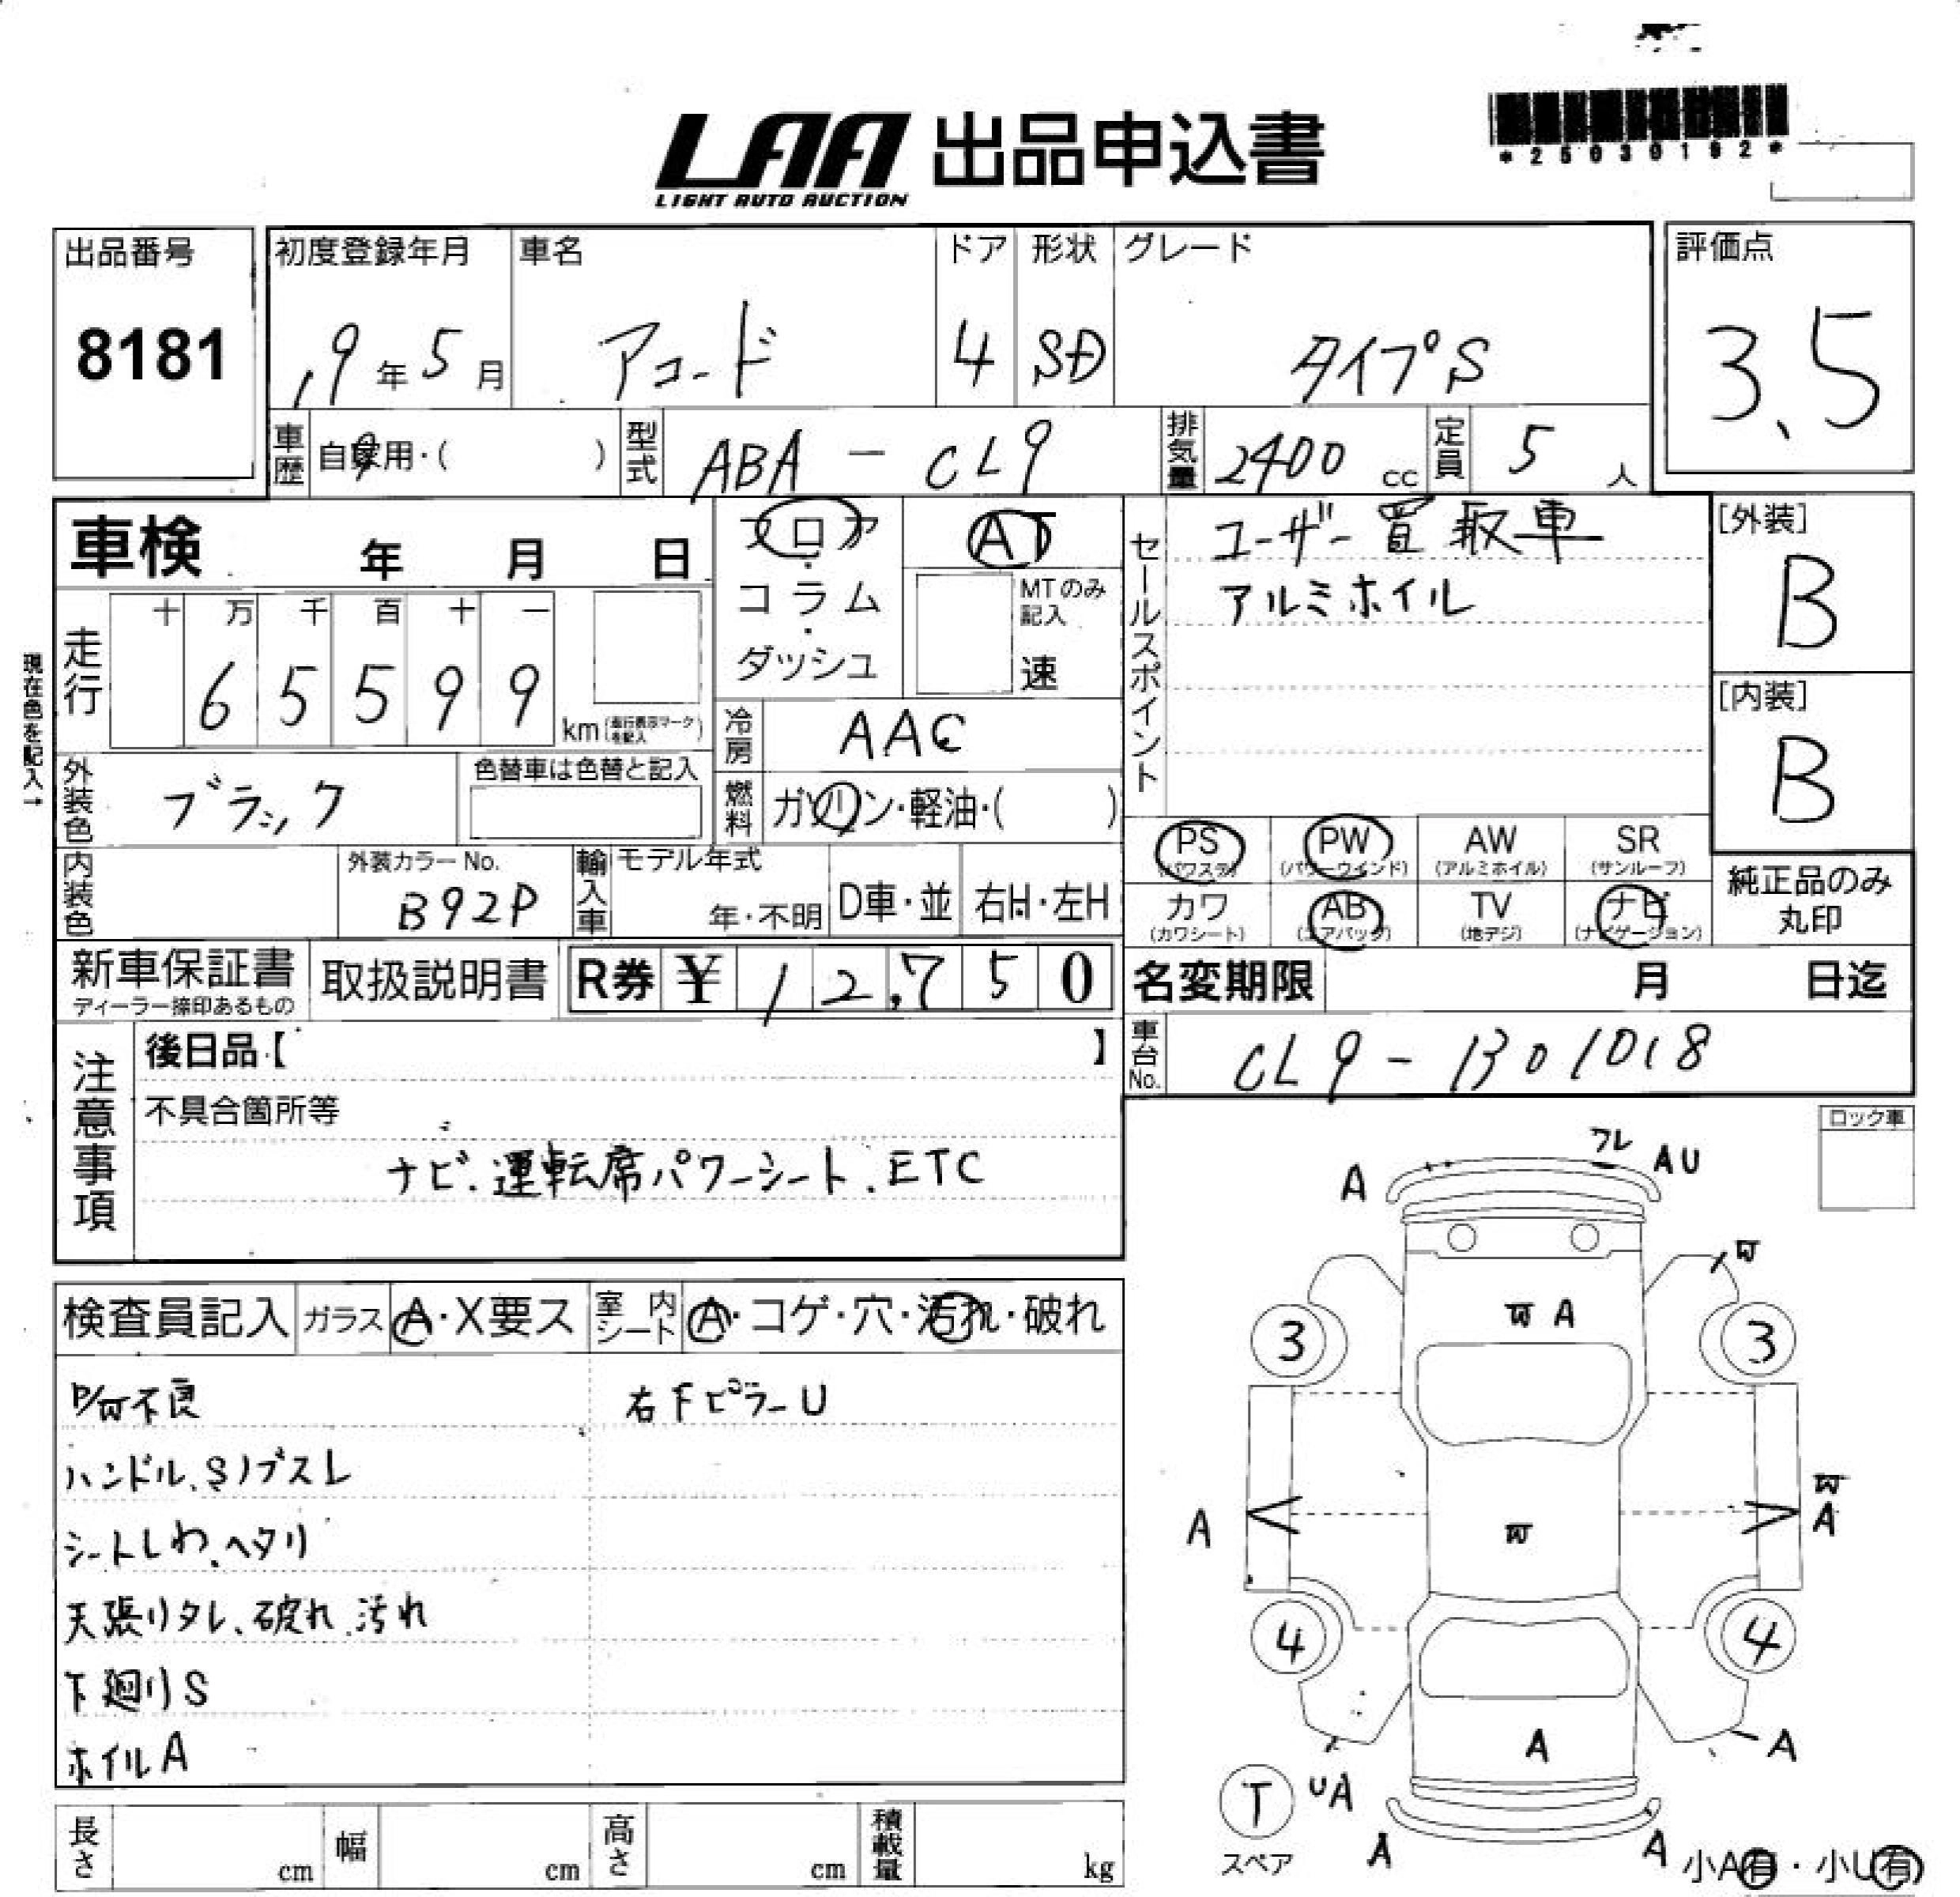 *25030192*
LAA 出品申込書
LIGHT AUTO AUCTION
出品番号
8181
初度登録年月
19年5月
車名
アコード
ドア
4
形状
SD
グレード
タイプS
評価点
3.5
車歴
自家用・( )
型式
ABA-CL9
排気量
2400 cc
定員
5人
車検 年 月 日
フロア・コラム・ダッシュ
AT
MTのみ記入
速
セールスポイント
ユーザー買取車
アルミホイル
[外装]
B
[内装]
B
現在色を記入→
走行
十 万 千 百 十 一
6 5 5 9 9
km(走行表示マークを記入)
冷房
AAC
燃料
ガソリン・軽油・( )
外装色
ブラック
色替車は色替と記入
内装色
外装カラーNo.
B92P
輸入車
モデル年式
年・不明
D車・並
右H・左H
PS
(パワステ)
PW
(パワーウインド)
AW
(アルミホイル)
SR
(サンルーフ)
カワ
(カワシート)
AB
(エアバッグ)
TV
(地デジ)
ナビ
(ナビゲーション)
純正品のみ
丸印
新車保証書
ディーラー捺印あるもの
取扱説明書
R券 ¥ 12,750
名変期限 月 日迄
車台No.
CL9-1301018
注意事項
後日品【 】
不具合箇所等
ナビ.運転席パワーシート.ETC
ロック車
検査員記入
ガラス
A・X要ス
室内シート
A・コゲ・穴・汚れ・破れ
P/W不良
右下ピラーU
ハンドル.Sノブスレ
シートしわ.ヘタリ
天張りタレ、破れ.汚れ
下廻りS
ホイルA
A
フレ AU
W
W A
3
3
A
W
W
A
4
4
A
A
T
スペア
UA
A
A
小A有・小U有
長さ cm
幅 cm
高さ cm
積載量 kg